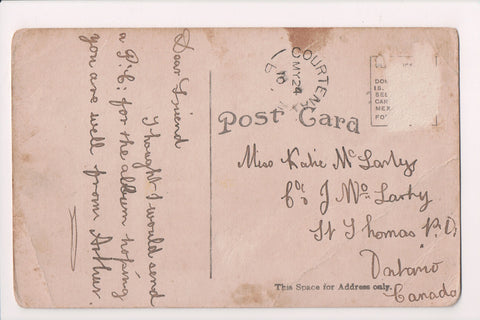 Dear Friend
I hought I would send
a P.C: for the album hoping
you are well from Arthur.
COURTENA
MY 24
10
Post Card
DOM
IS.
SEE
CAN
MEX
FO
Miss Katie Mc Larty
C/o J Mc Larty
St Thomas P.O.
Ontario
Canada
This Space for Address only.